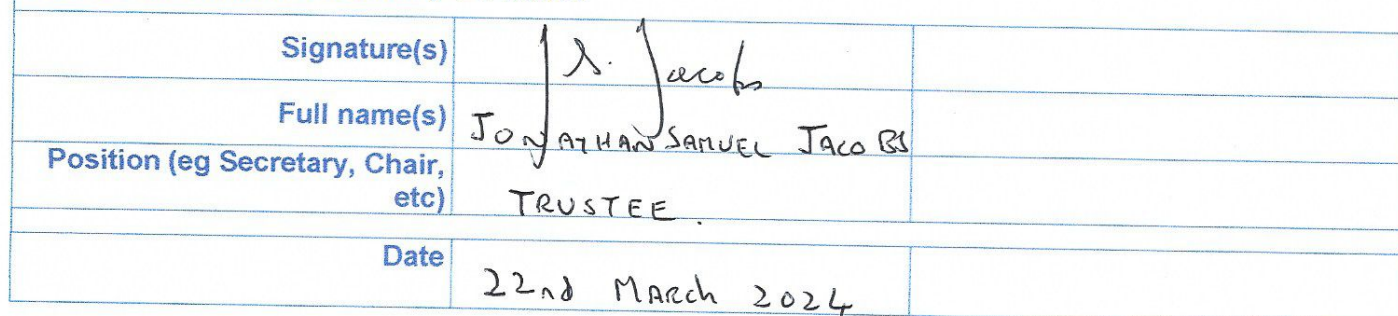 Signature(s) J S. Jacobs
Full name(s) JONATHAN SAMUEL JACOBS
Position (eg Secretary, Chair,
etc) TRUSTEE.
Date 22nd MARch 2024